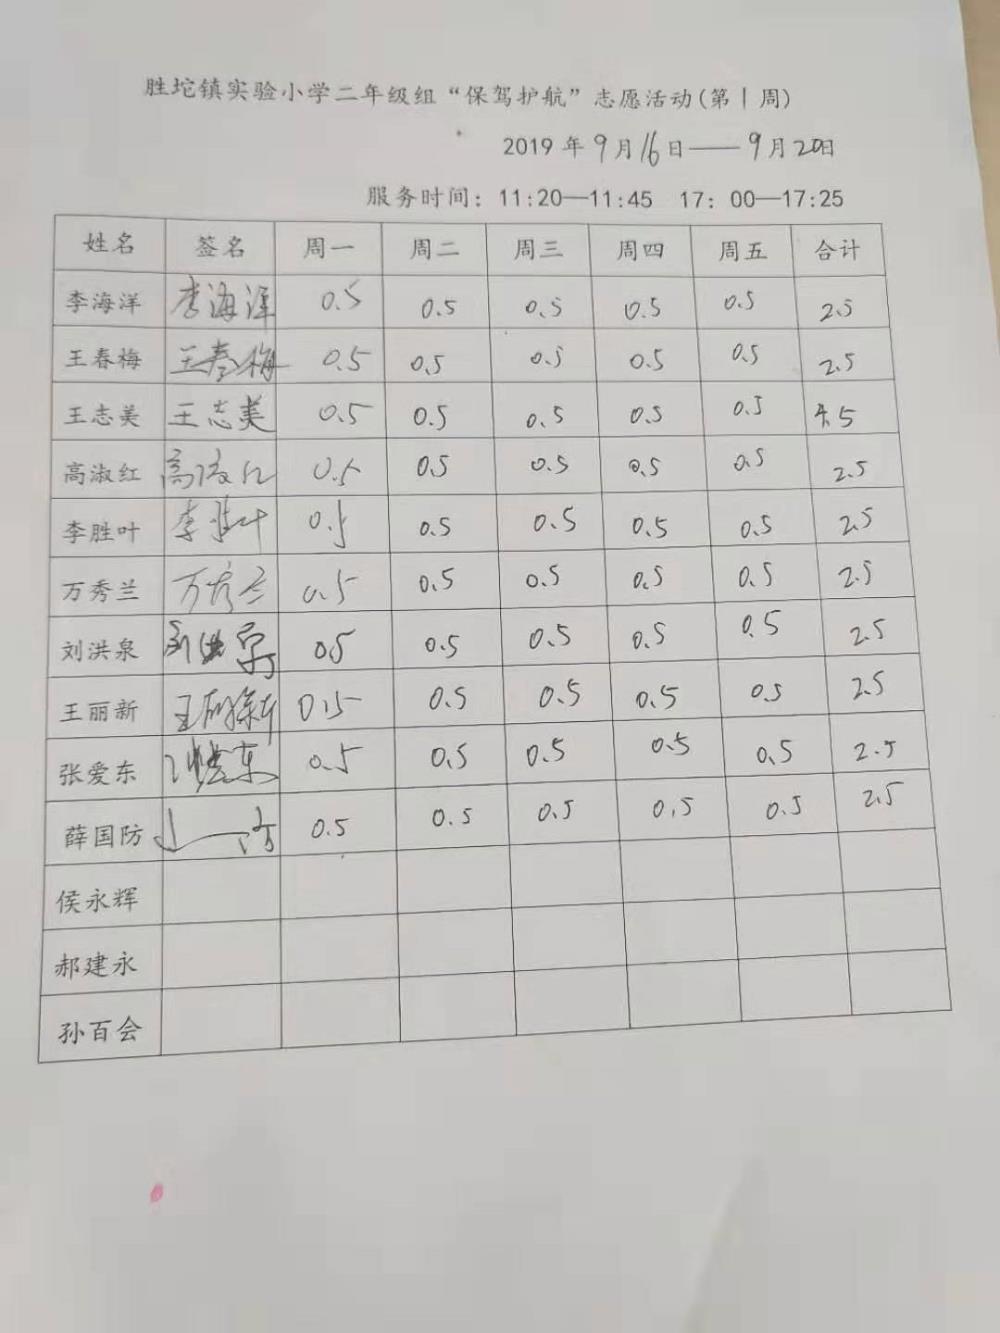 胜坨镇实验小学二年级组“保驾护航”志愿活动(第1周)
2019年9月16日——9月20日
服务时间：11:20—11:45 17：00—17:25
姓名 签名 周一 周二 周三 周四 周五 合计
李海洋 李海洋 0.5 0.5 0.5 0.5 0.5 2.5
王春梅 王春梅 0.5 0.5 0.5 0.5 0.5 2.5
王志美 王志美 0.5 0.5 0.5 0.5 0.5 .5
高淑红 高淑红 0.5 0.5 0.5 0.5 0.5 2.5
李胜叶 李胜叶 0.5 0.5 0.5 0.5 0.5 2.5
万秀兰 万秀兰 0.5 0.5 0.5 0.5 0.5 2.5
刘洪泉 刘洪泉 0.5 0.5 0.5 0.5 0.5 2.5
王丽新 王丽新 0.5 0.5 0.5 0.5 0.5 2.5
张爱东 张爱东 0.5 0.5 0.5 0.5 0.5 2.5
薛国防 0.5 0.5 0.5 0.5 0.5 2.5
侯永辉
郝建永
孙百会